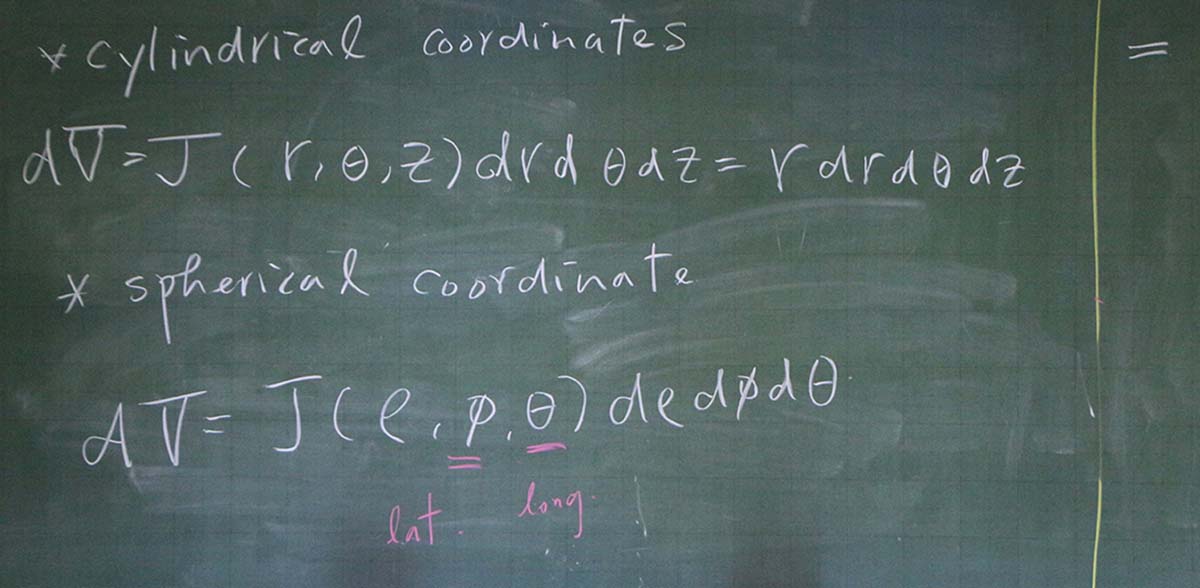 * cylindrical coordinates
dV = J (r, θ, z) dr d θ dz = r dr dθ dz
=
* spherical coordinate
dV = J(ρ, φ, θ) dρ dφ dθ
lat. long.